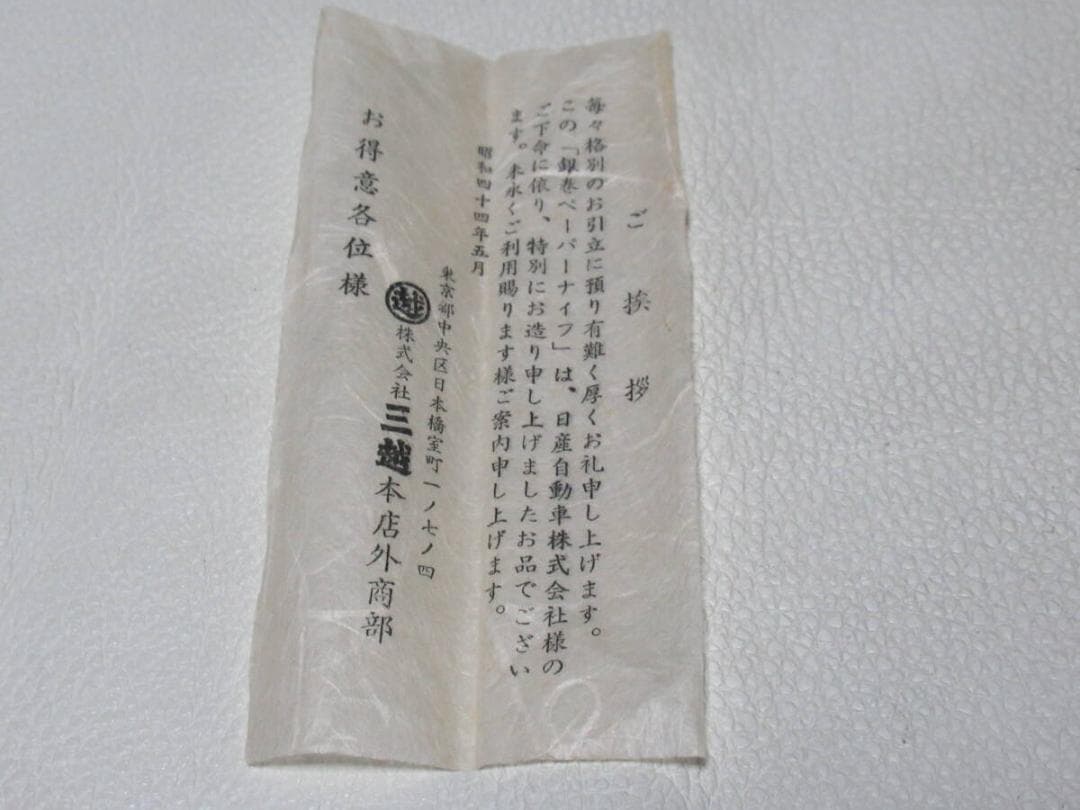 ご挨拶
毎々格別のお引立に預り有難く厚くお礼申し上げます。
この「銀巻ペーパーナイフ」は、日産自動車株式会社様の
ご下命に依り、特別にお造り申し上げましたお品でござい
ます。末永くご利用賜ります様ご案内申し上げます。
昭和四十四年五月
東京都中央区日本橋室町一ノ七ノ四
越 株式会社三越本店外商部
お得意各位様